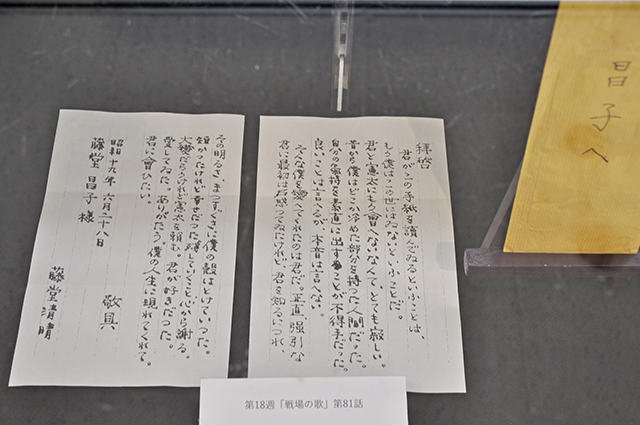 昌子へ
拝啓
君がこの手紙を讀んでゐるといふことは、
もう僕はこの世にはゐないといふことだ。
君と憲太にもう會へないなんて、とても寂しい。
昔から僕はどこか冷めた部分を持つた人間だつた。
自分の氣持を素直に出すことが不得手だつた。
良いことは言へるが、本音は言へない。
そんな僕を變へてくれたのは君だ。正直、強引な
君に最初は戸惑つてゐたけれど、君を知るにつれ
その明るさ、まつすぐさに僕の殻はとけていつた。
短かつたけれど幸せだつた。殘していくこと、心から謝る。
大變だらうけれど憲太を頼む。君が好きだつた。
愛してゐた。ありがたう。僕の人生に現れてくれて。
君に會ひたい。
敬具
昭和十九年六月二十八日
藤堂昌子様
藤堂清晴
第18週「戦場の歌」第81話